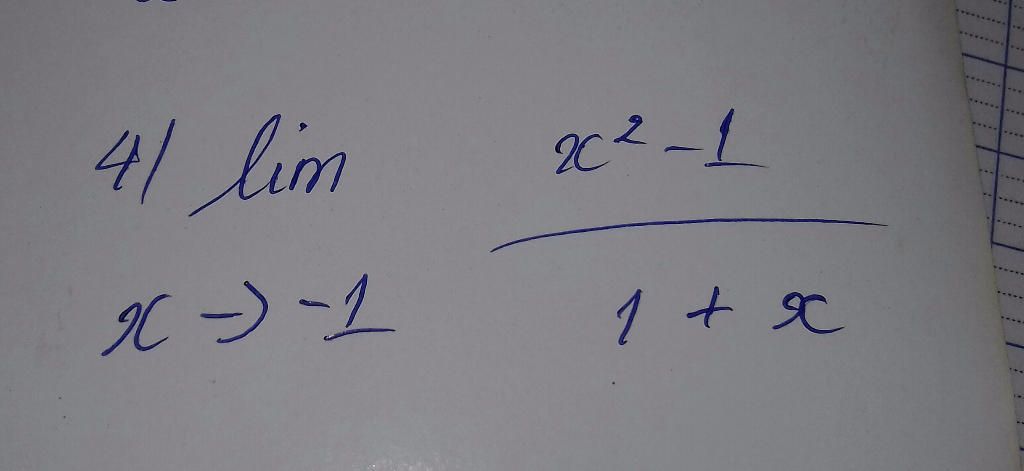 4/ lim x² - 1
x -> -1 1 + x